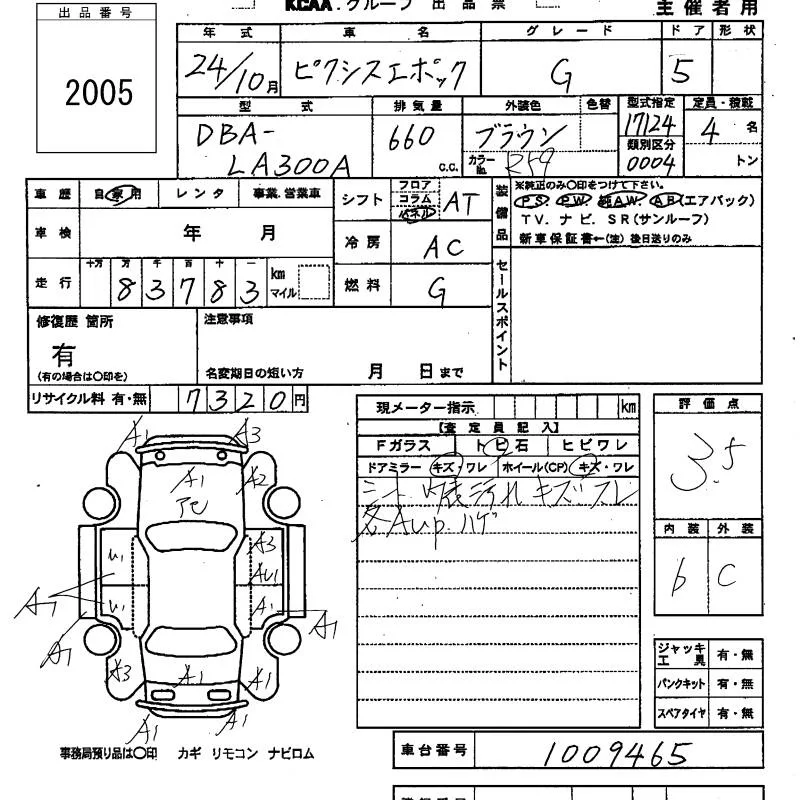 出品番号
2005
KCAA.グループ 出品票
主催者用
年式 車名 グレード ドア 形状
24/10月 ピクシスエポック G 5
型式 排気量 外装色 色替 型式指定 定員・積載
DBA-LA300A 660 c.c. ブラウン カラーNo. R59 17124 4名
類別区分
0004 トン
車歴 自家用 レンタ 事業.営業車
シフト フロア コラム パネル AT
装備品 ※純正のみ〇印をつけて下さい。
PS PW 純AW AB(エアバック)
TV. ナビ. SR(サンルーフ)
新車保証書←(注) 後日送りのみ
車検 年 月
冷房 AC
走行 十万 万 千 百 十 一
83783 km マイル
燃料 G
セールスポイント
修復歴 箇所
有
(有の場合は〇印を)
注意事項
名変期日の短い方 月 日まで
リサイクル料 有・無 7320円
現メーター指示 km
【査定員記入】
Fガラス トビ石 ヒビワレ
ドアミラー キズ・ワレ ホイール(CP) キズ・ワレ
シート 内張汚れ キズ スレ
各AUP. ハゲ
評価点
3.5
内装 外装
b C
ジャッキ工具 有・無
パンクキット 有・無
スペアタイヤ 有・無
A1 A3
A1 A2
アセ
U1 A3
AU1
U1 A1
A1 A1
A1
A3 A1
A1 A1
事務局預り品は〇印 カギ リモコン ナビロム
車台番号 1009465